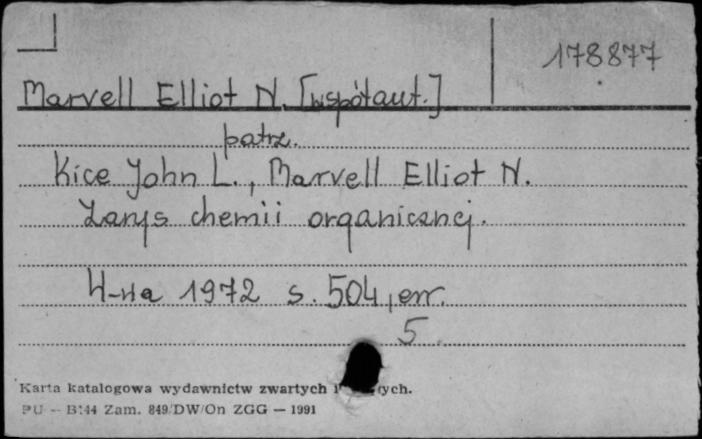 178877
Marvell Elliot N. [współaut.]
patrz.
Kice John L., Marvell Elliot N.
Zarys chemii organicznej.
W-wa 1972 s. 504, err.
5
Karta katalogowa wydawnictw zwartych
PU — B144 Zam. 849/DW/On ZGG — 1991